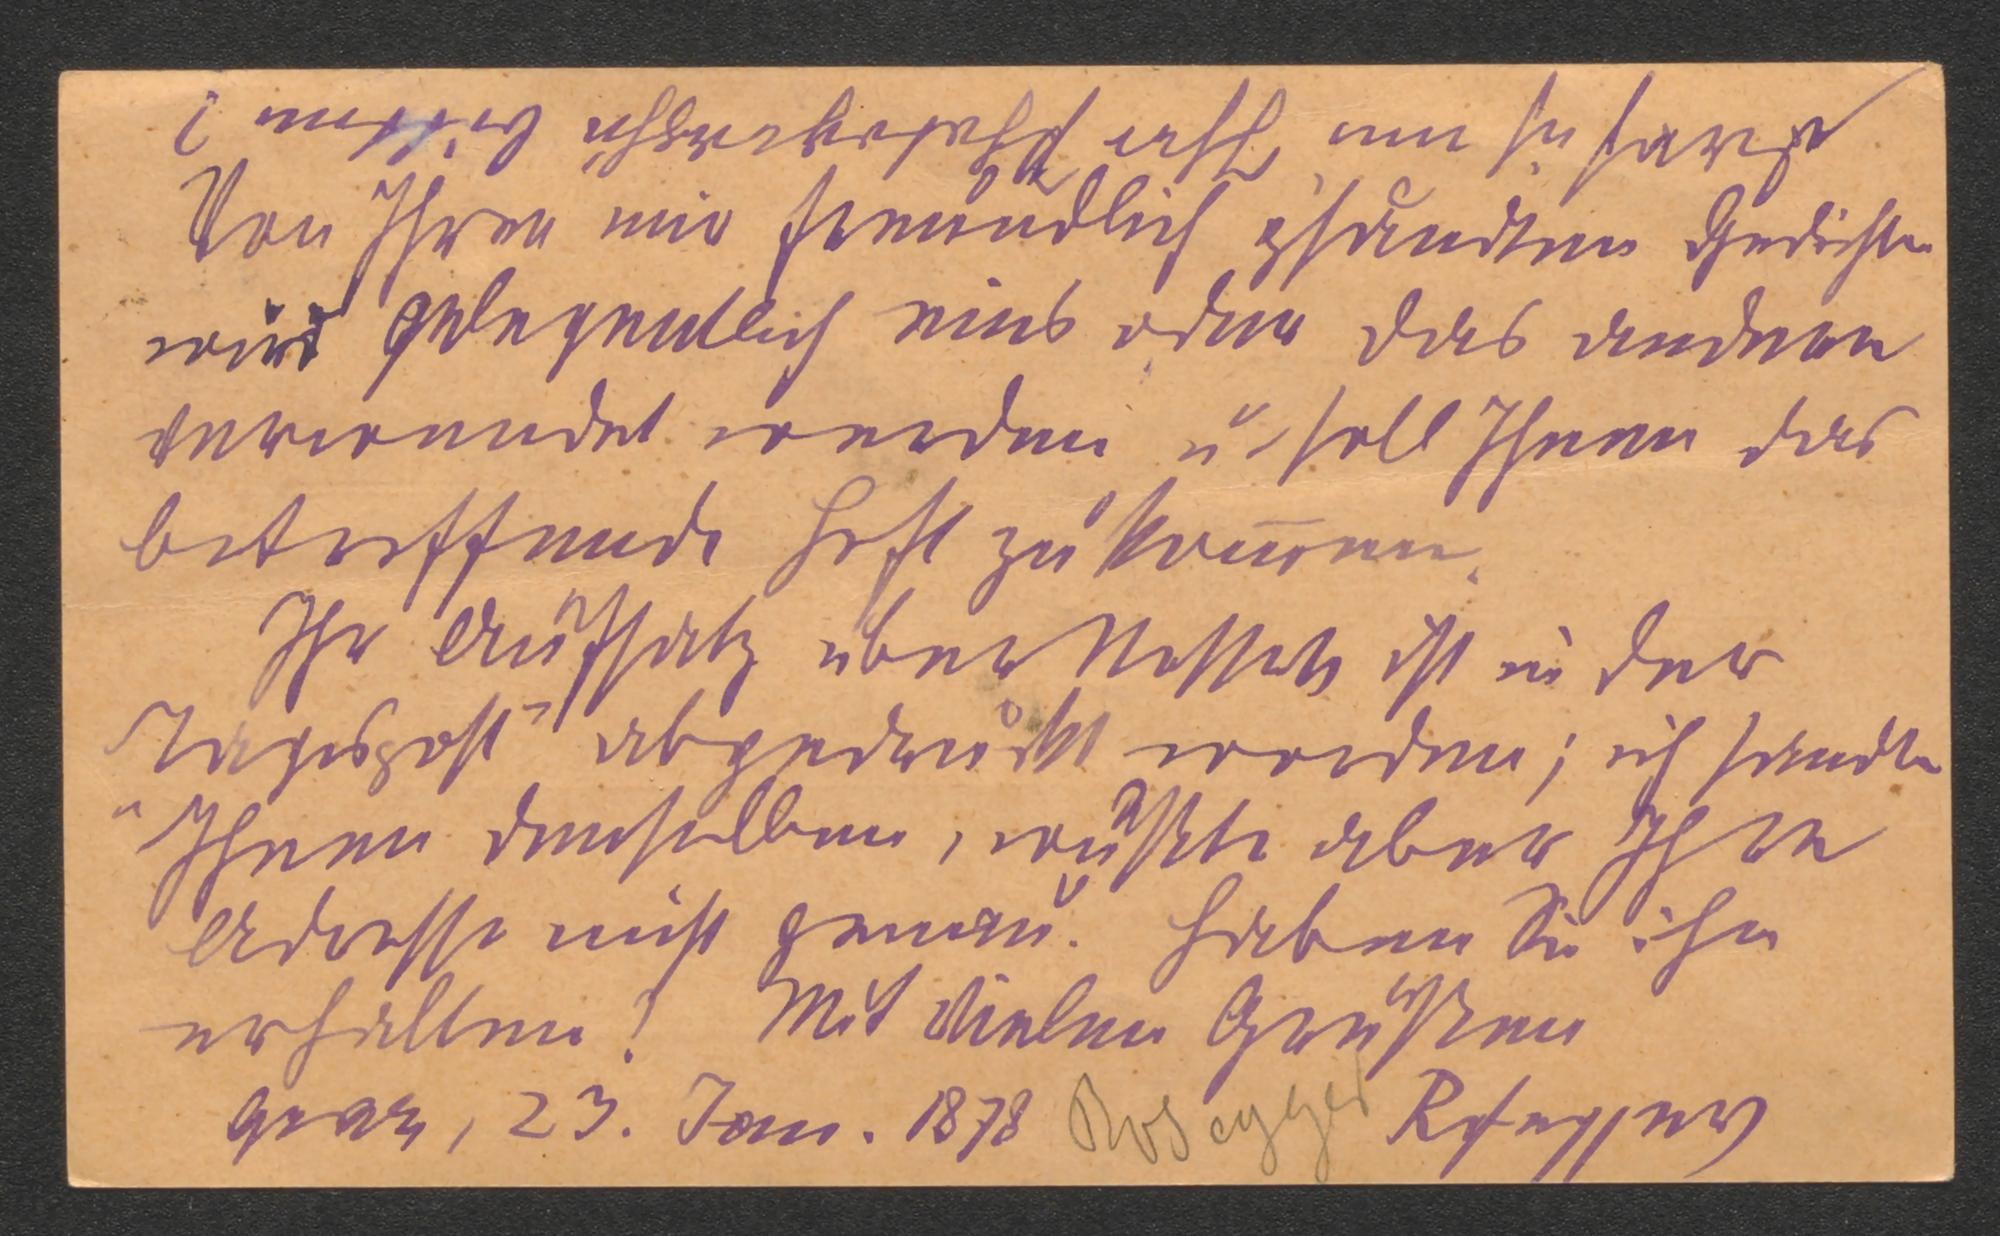 um Ihre Photographie bitten ?
Von Ihren mir freundlich gesandten Gedichten
wird gelegentlich eins oder das andere
verwendet werden u. soll Ihnen das
betreffende Heft zukom̅en.
Ihr Aufsatz über ist in der
„Tagespost" abgedruckt worden; ich sandte
Ihnen denselben, wußte aber Ihre
Adresse nicht genau. Haben Sie ihn
erhalten? Mit vielen Grüßen
Graz, 23. Jan. 1878 Rosegger Rosegger